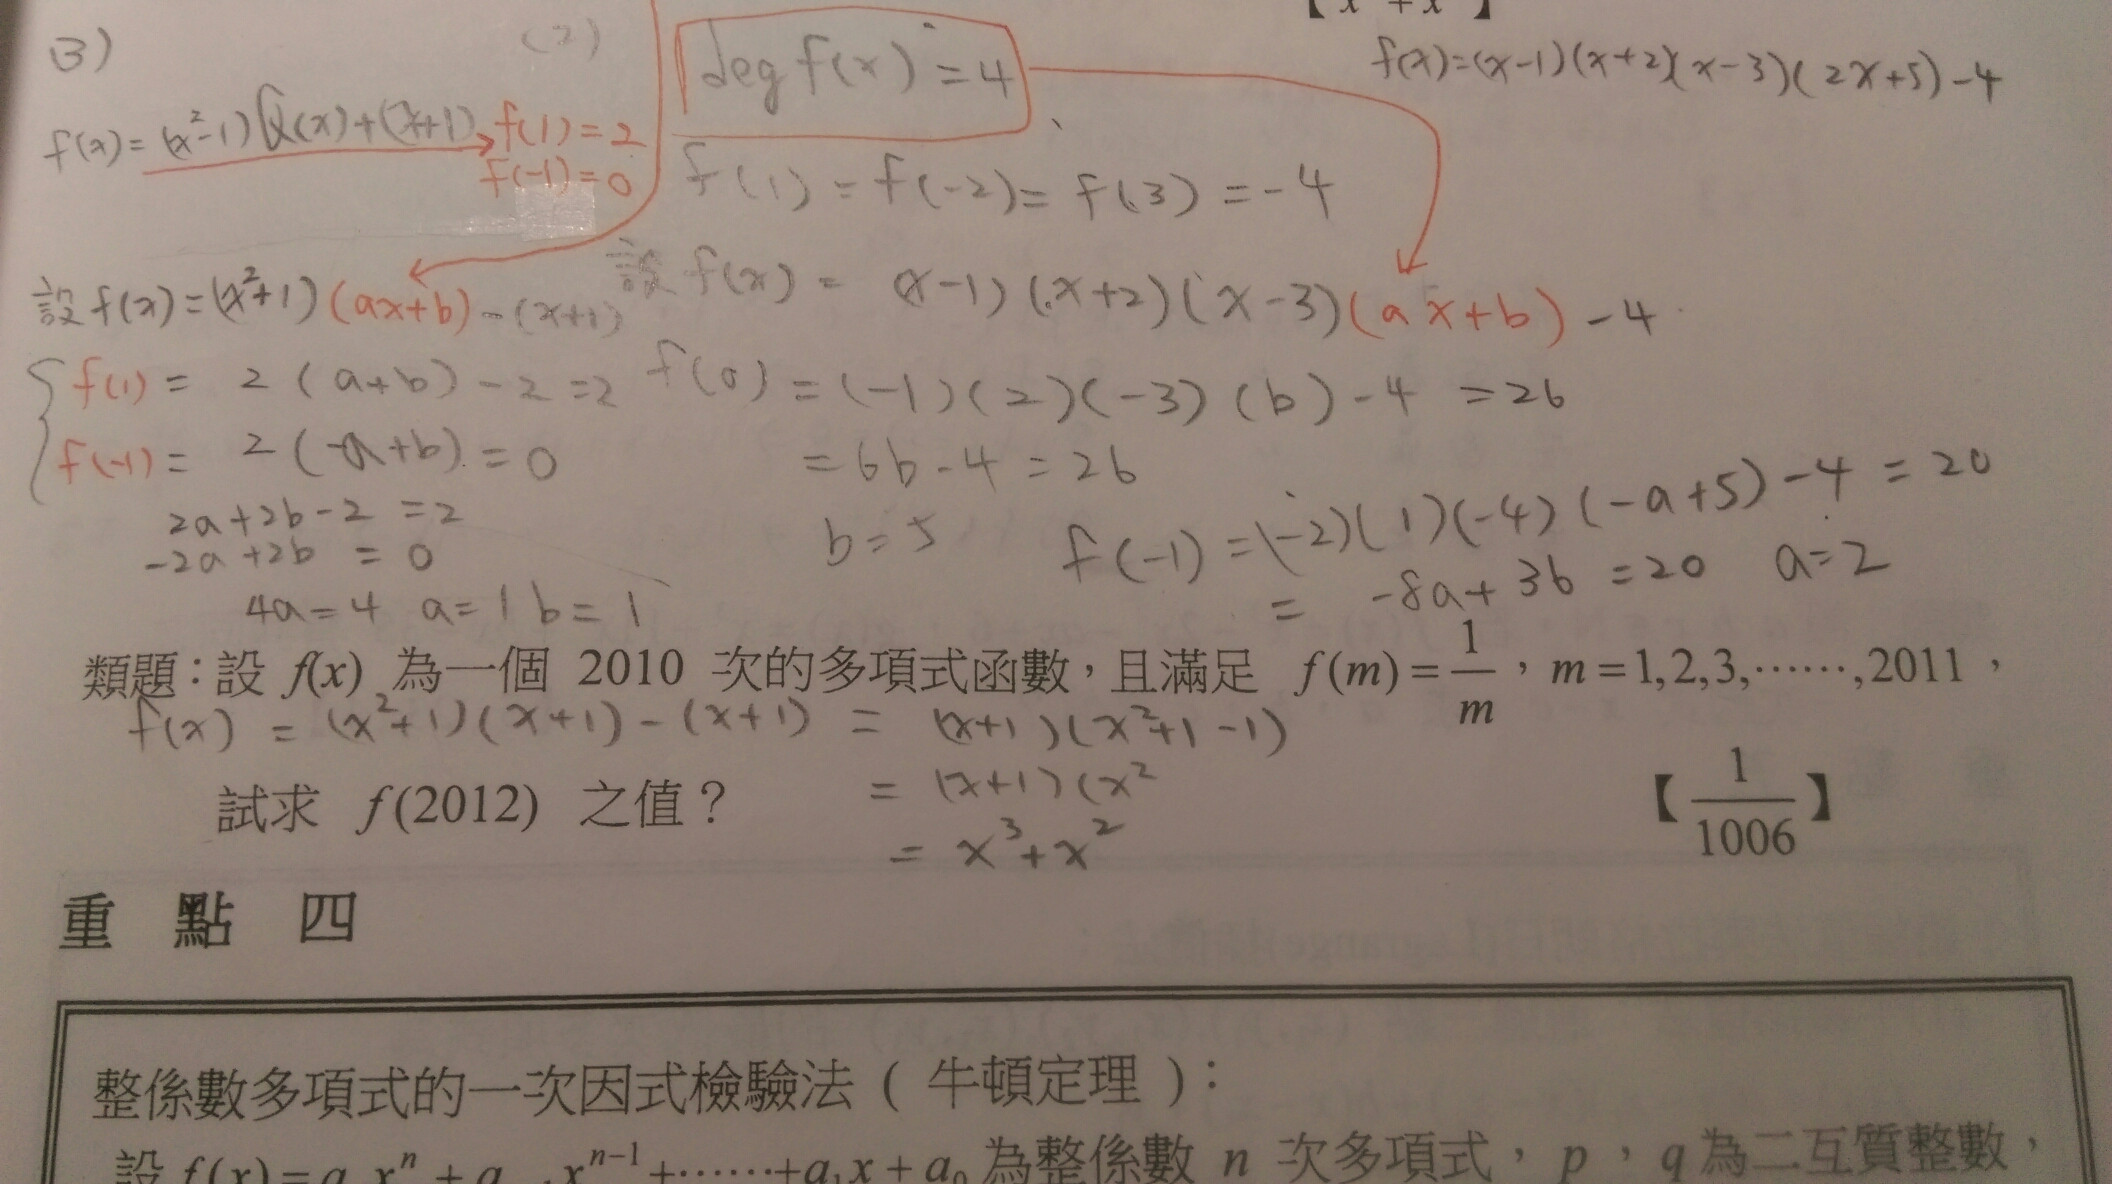 【x³+x²】
(3)
(2)
deg f(x) = 4
f(x)=(x-1)(x+2)(x-3)(2x+5)-4
f(x)=(x²-1)Q(x)+(x+1) f(1)=2
f(-1)=0
f(1)=f(-2)=f(3)=-4
設f(x)=(x²+1)(ax+b)-(x+1)
設f(x)=(x-1)(x+2)(x-3)(ax+b)-4
f(1)= 2(a+b)-2=2
f(0)=(-1)(2)(-3)(b)-4 =26
f(-1)= 2(-a+b)=0
=6b-4=26
2a+2b-2=2
b=5
f(-1)=(-2)(1)(-4)(-a+5)-4=20
-2a+2b=0
= -8a+36=20 a=2
4a=4 a=1 b=1
類題：設 f(x) 為一個 2010 次的多項式函數，且滿足 f(m)=1/m，m=1,2,3,……,2011，
f(x) = (x²+1)(x+1)-(x+1) = (x+1)(x²+1-1)
= (x+1)(x²
試求 f(2012) 之值？ 【1/1006】
= x³+x²
重 點 四
整係數多項式的一次因式檢驗法 ( 牛頓定理 )：
為整係數 n 次多項式，p，q為二互質整數，